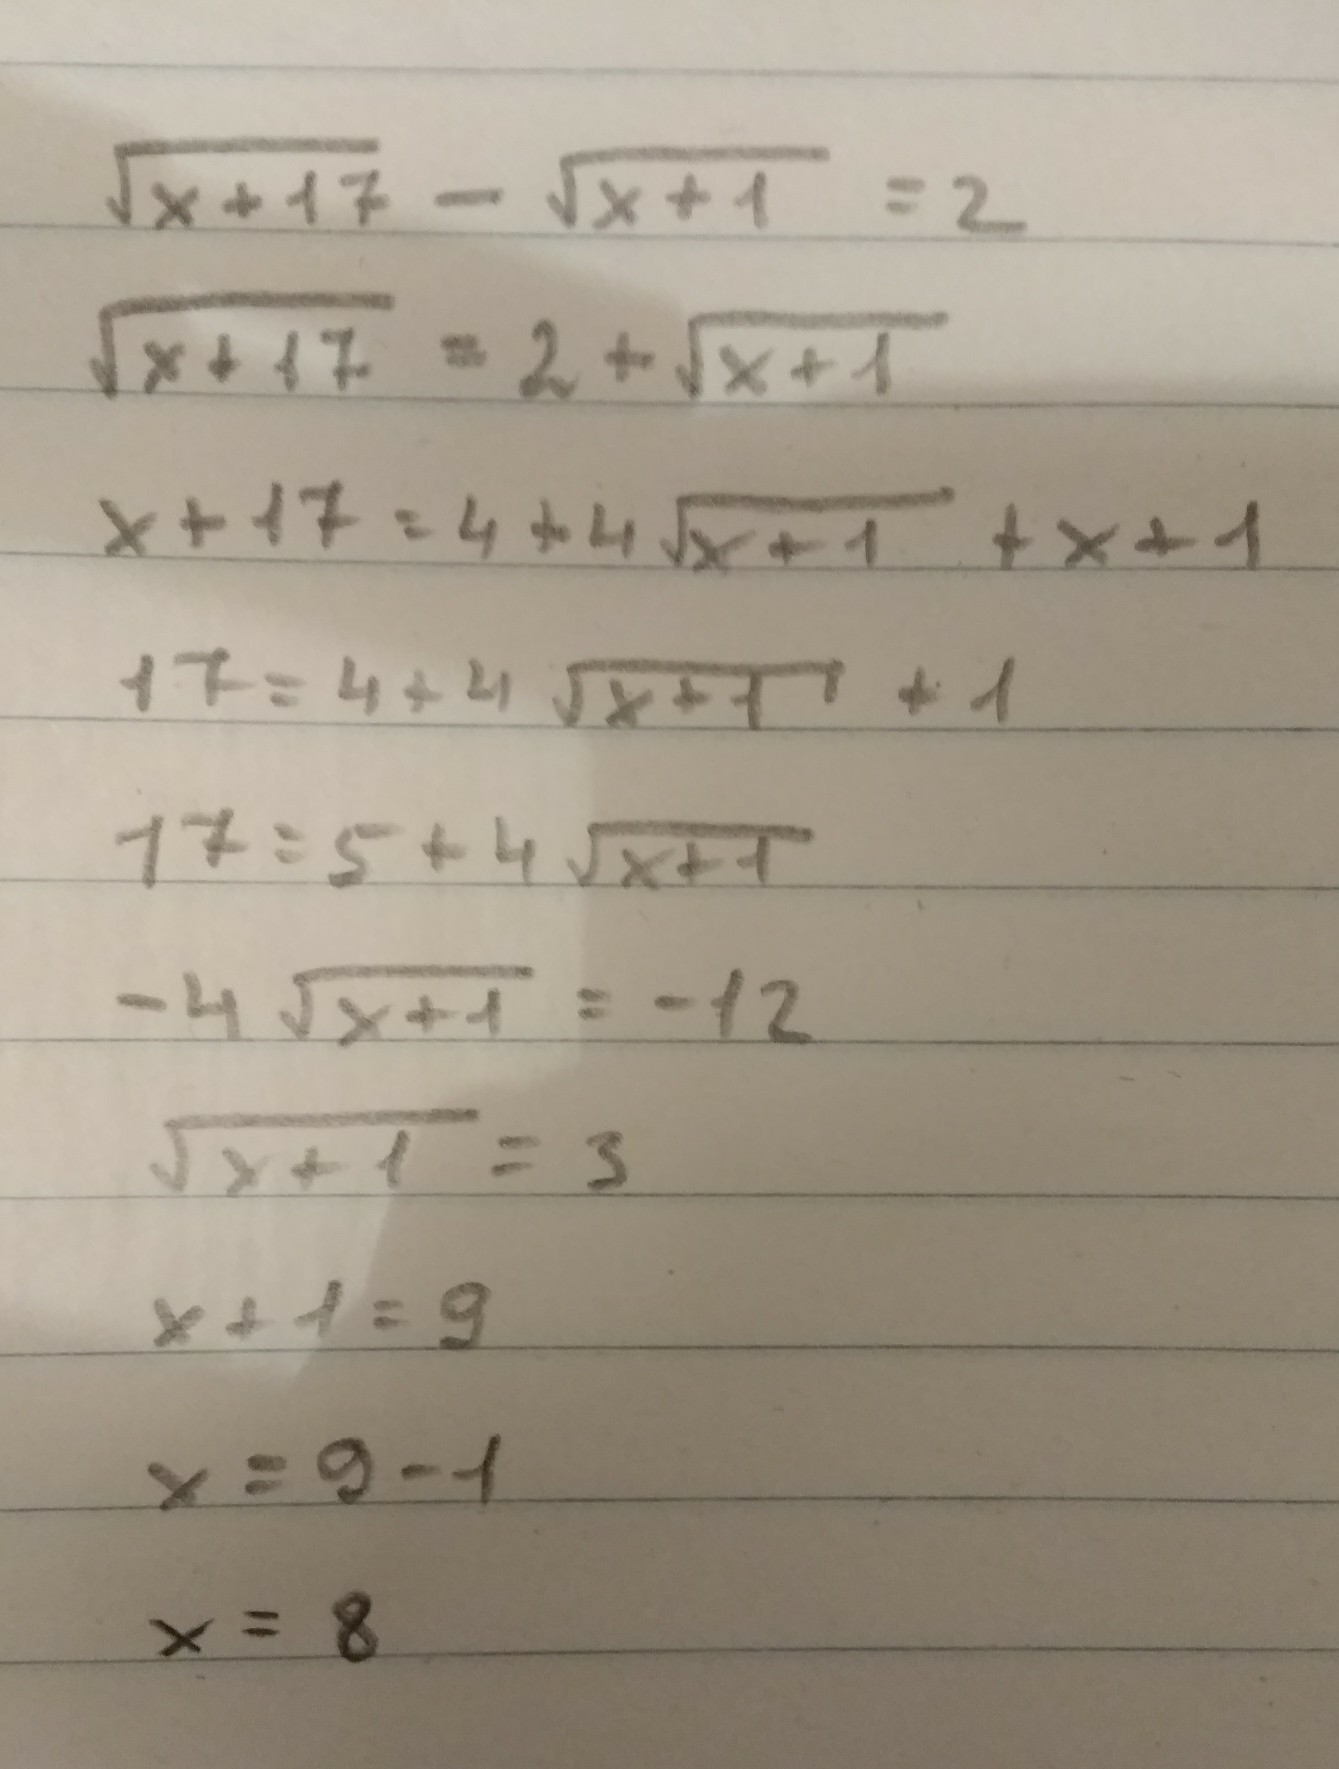 √(x+17) - √(x+1) = 2
√(x+17) = 2 + √(x+1)
x+17 = 4+4√(x+1) + x+1
17 = 4+4√(x+1) + 1
17 = 5+4√(x+1)
-4√(x+1) = -12
√(x+1) = 3
x+1 = 9
x = 9-1
x = 8